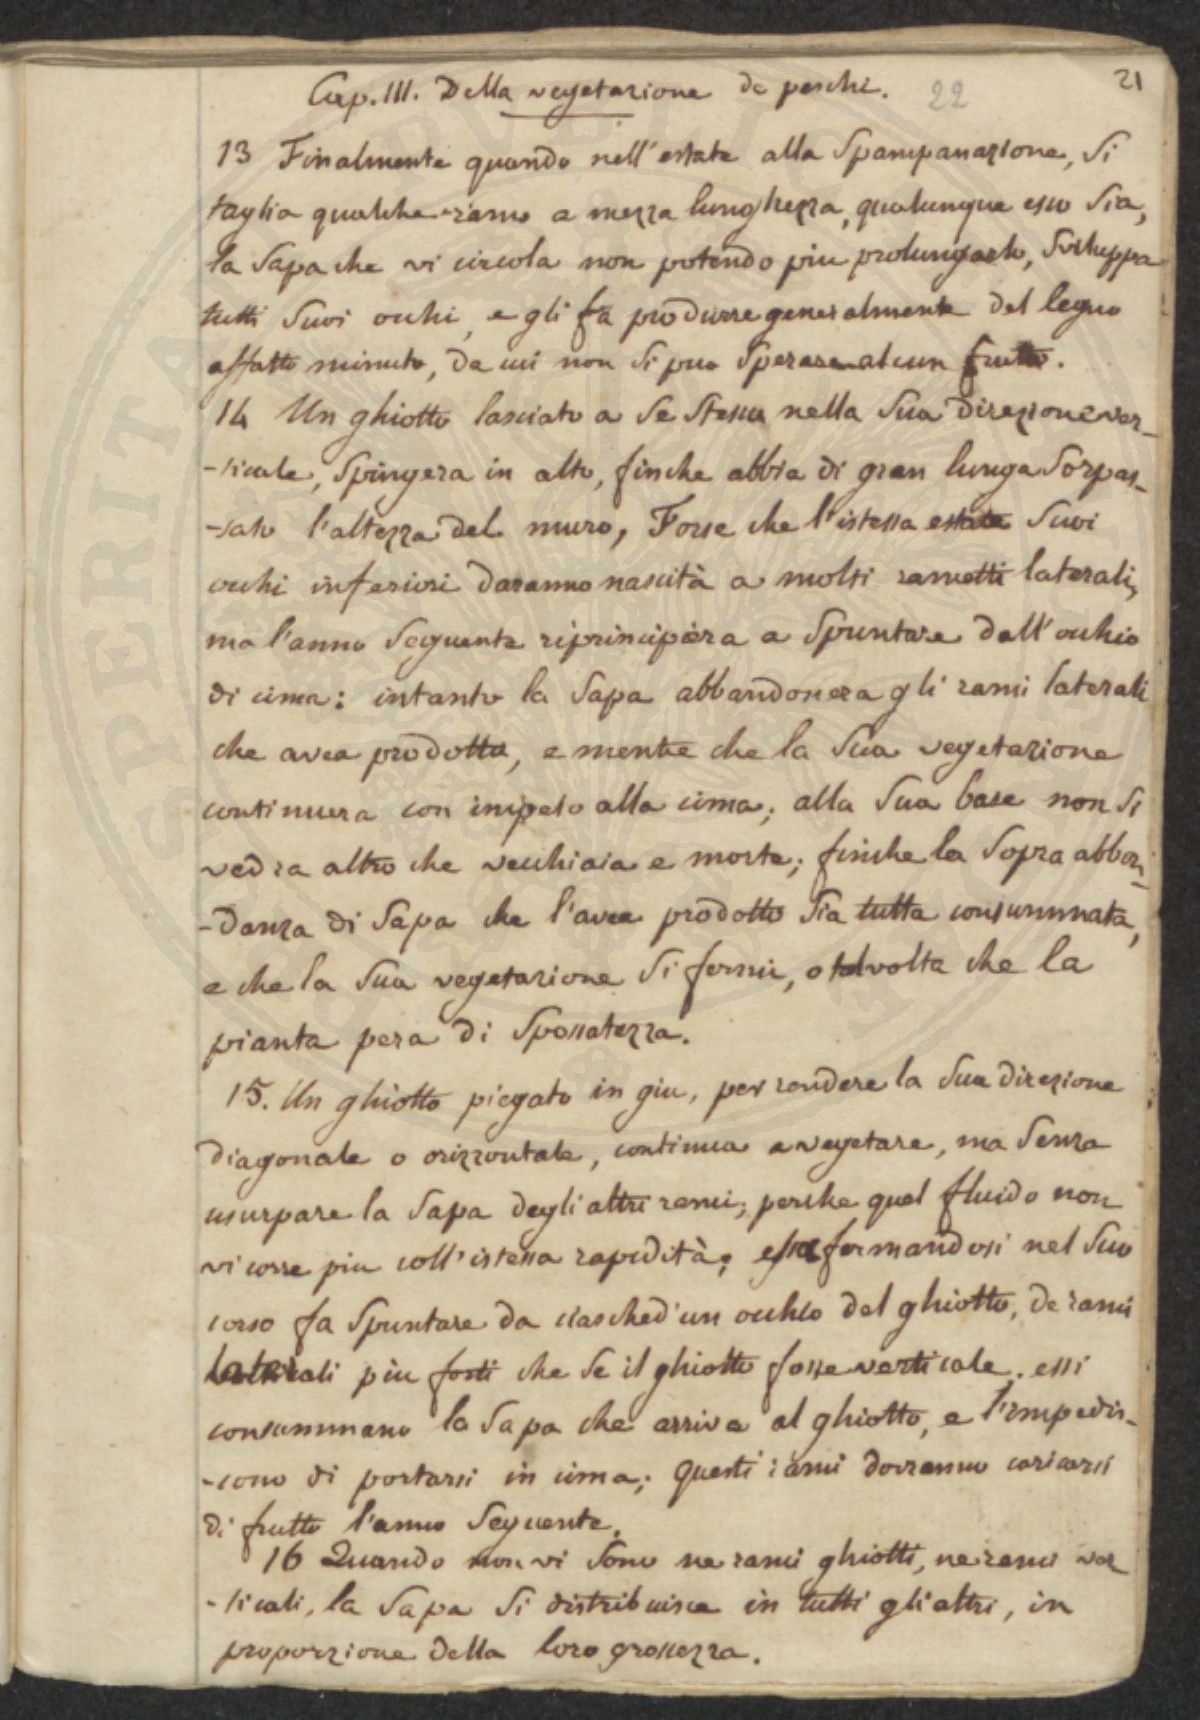 21
Cap. III. Della vegetazione de peschi. 22
13 Finalmente quando nell'estate alla Spampanazione, Si
taglia qualche ramo a mezza lunghezza, qualunque esso Sia,
la Sapa che vi circola non potendo piu prolungarlo, Sviluppa
tutti Suoi occhi, e gli fa produrre generalmente del legno
affatto minuto, da cui non Si puo Sperare alcun frutto.
14 Un ghiotto lasciato a Se Stesso nella Sua direzione ver-
-ticale, Spingera in alto, finche abbia di gran lunga Sorpas-
-sato l'altezza del muro, Forse che l'istessa estate Suoi
occhi inferiori daranno nascità a molti rametti laterali,
ma l'anno Seguente riprincipiera a Spuntare dall'occhio
di cima: intanto la Sapa abbandonera gli rami laterali
che avea prodotto, e mentre che la Sua vegetazione
continuera con impeto alla cima; alla Sua base non Si
vedra altro che vecchiaia e morte; finche la Sopra abbon-
-danza di Sapa che l'avea prodotto Sia tutta consummata,
e che la Sua vegetazione Si fermi, o talvolta che la
pianta pera di Spossatezza.
15. Un ghiotto piegato in giu, per rendere la Sua direzione
diagonale o orizzontale, continua a vegetare, ma Senza
usurpare la Sapa degli altri rami; perche quel fluido non
vi corre piu coll'istessa rapidità; essa formandosi nel Suo
corso fa Spuntare da ciasched'un occhio del ghiotto, de rami
laterali piu forti che Se il ghiotto fosse verticale. essi
consummano la Sapa che arriva al ghiotto, e l'impedis-
-cono di portarsi in cima; questi rami dovranno caricarsi
di frutto l'anno Seguente.
16 Quando non vi Sono ne rami ghiotti, ne rami ver
-ticali, la Sapa Si distribuisce in tutti gli altri, in
proporzione della loro grossezza.
SPERITAT PUBLIC